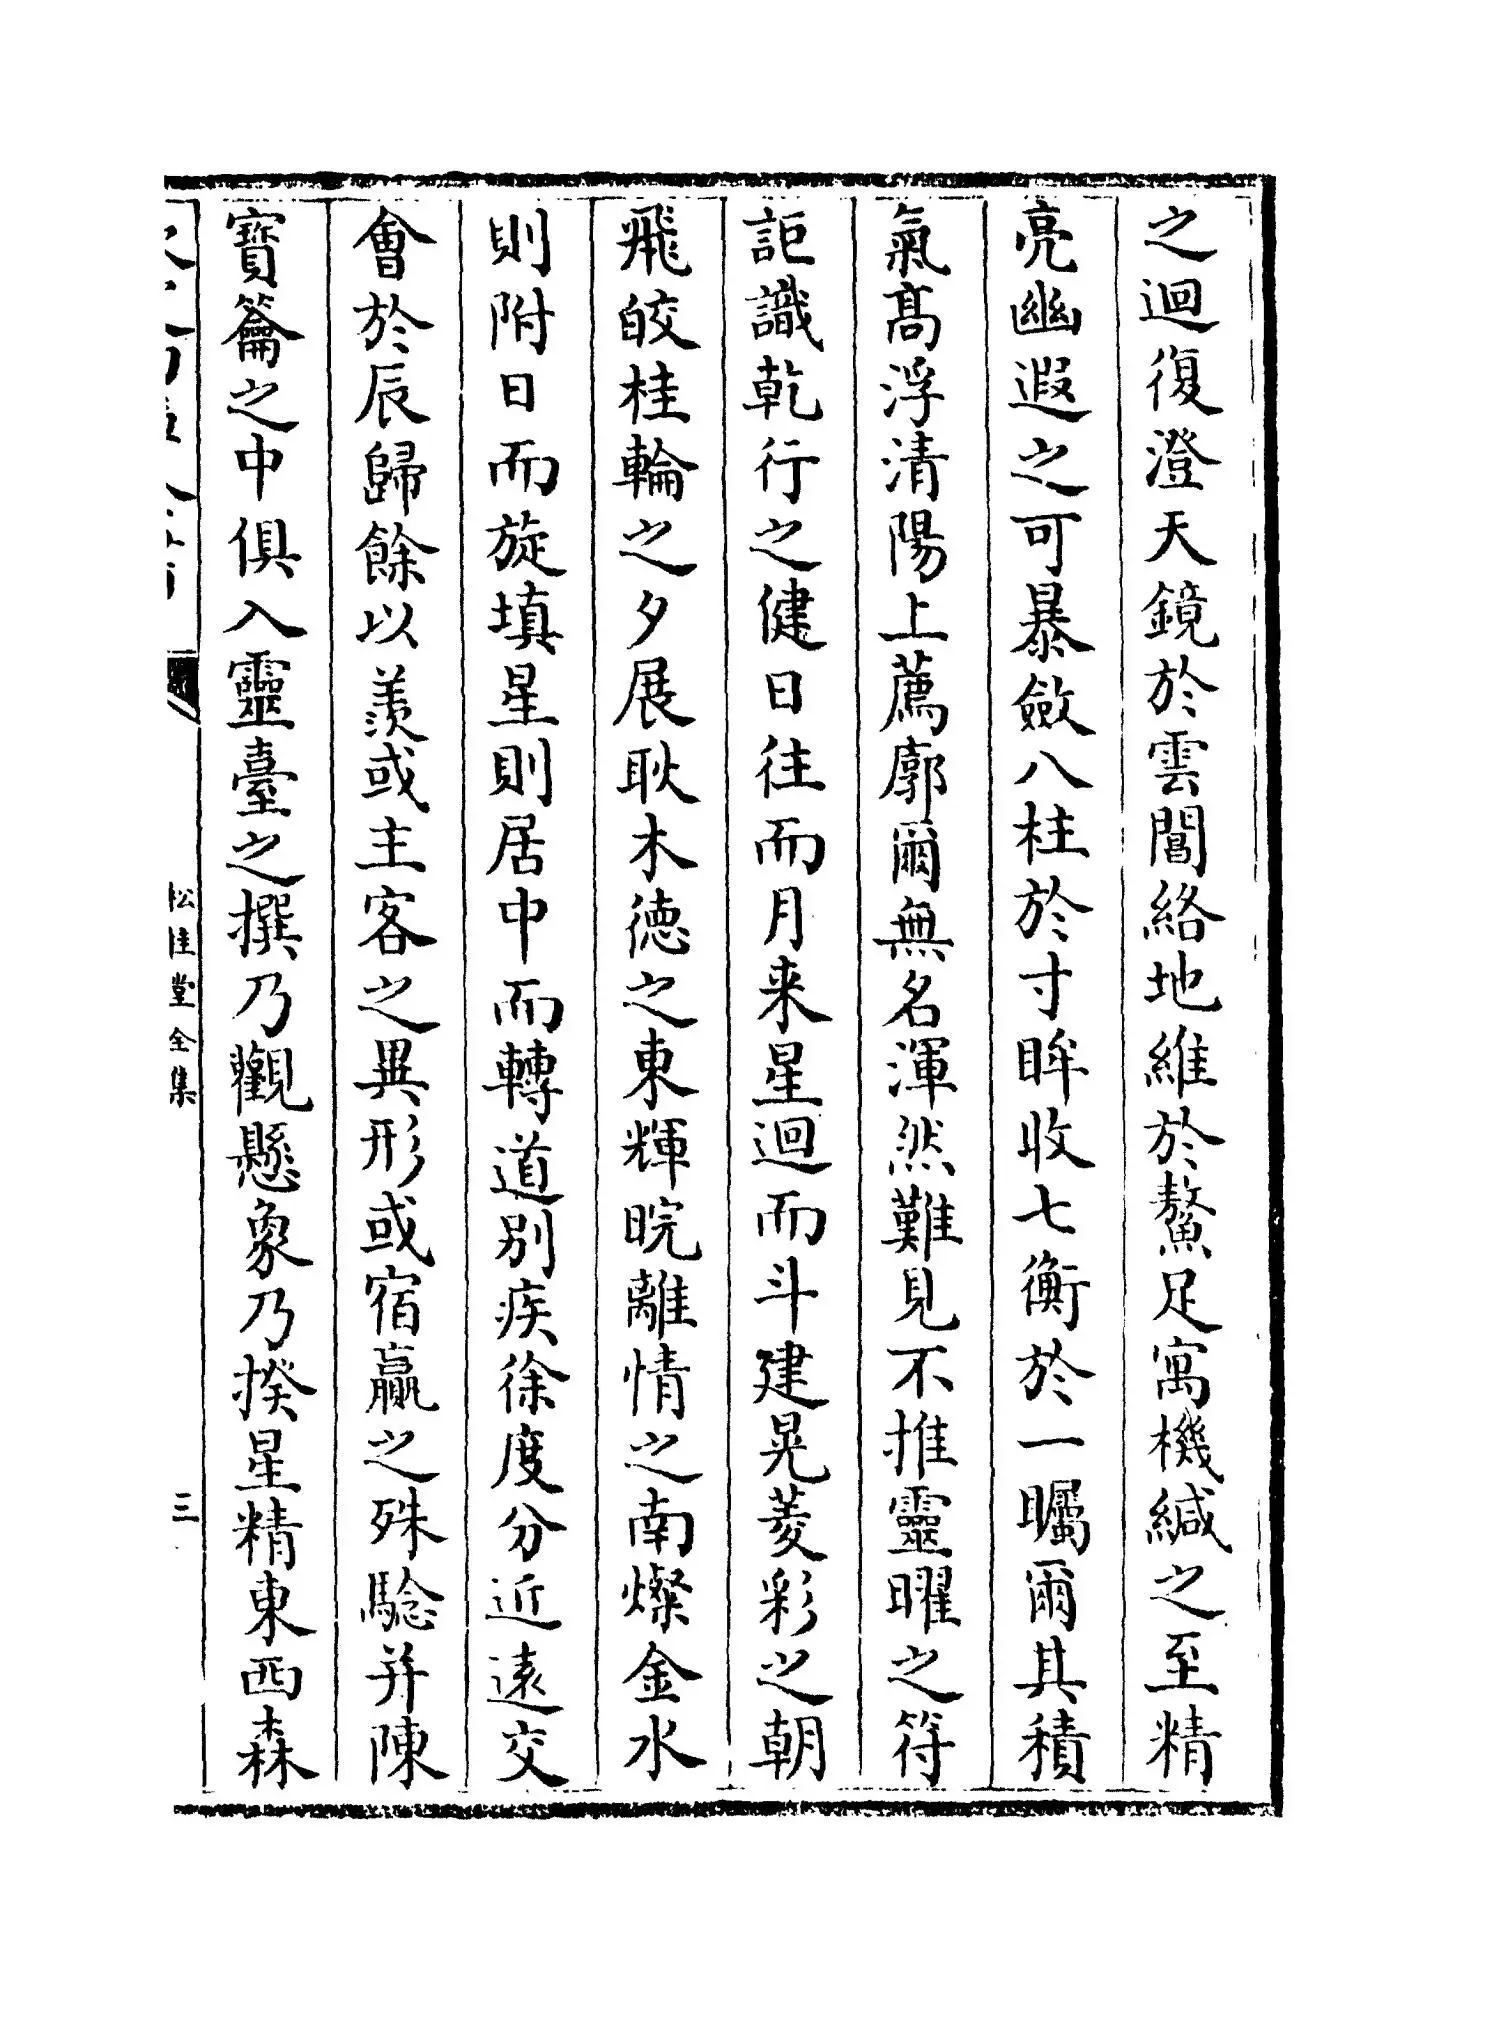 之迴復澄天鏡於雲閶絡地維於鰲足寓機緘之至精
亮幽遐之可暴斂八柱於寸眸收七衡於一矚爾其積
氣髙浮清陽上薦廓爾無名渾然難見不推靈曜之符
詎識乾行之健日往而月来星迴而斗建晃菱彩之朝
飛皎桂輪之夕展耿木德之東輝晥離情之南燦金水
則附日而旋填星則居中而轉道别疾徐度分近逺交
會於辰歸餘以羨或主客之異形或宿贏之殊騐并陳
寳籥之中俱入靈臺之撰乃觀懸象乃揆星精東西森
松桂堂全集
三